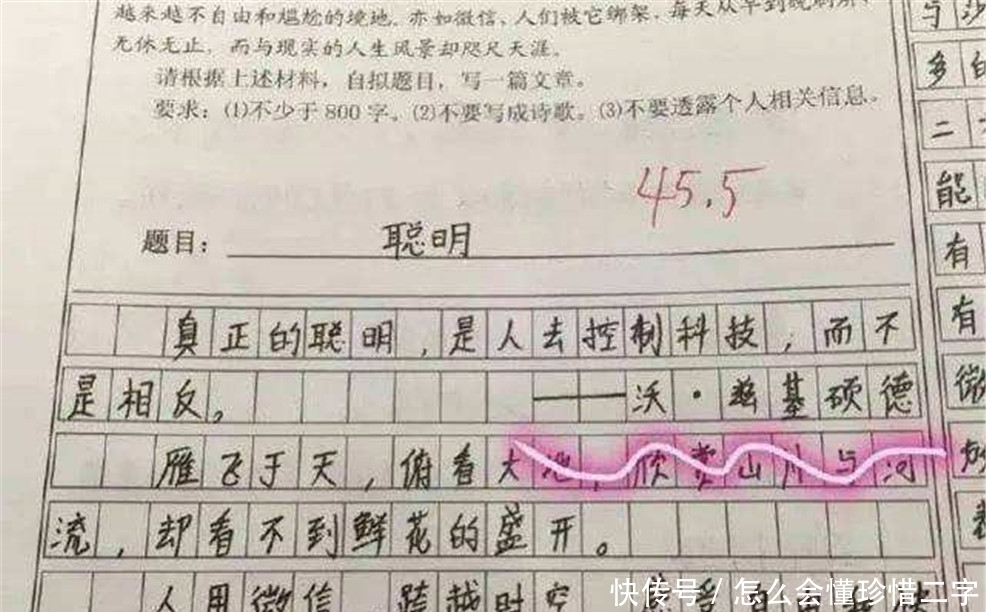 越来越不自由和尴尬的境地。亦如微信,人们被它绑架,每天从早到晚刷屏,
无休无止,而与现实的人生风景却咫尺天涯。
请根据上述材料,自拟题目,写一篇文章。
要求:(1)不少于800字。(2)不要写成诗歌。(3)不要透露个人相关信息。
45.5
题目: 聪明
真正的聪明,是人去控制科技,而不
是相反。 ——沃·兹基硕德
雁飞于天,俯看大地,欣赏山川与河
流,却看不到鲜花的盛开。
人用微信 跨越时空
与沙
多
二
能
有
有
微
快传号/怎么会懂珍惜二字